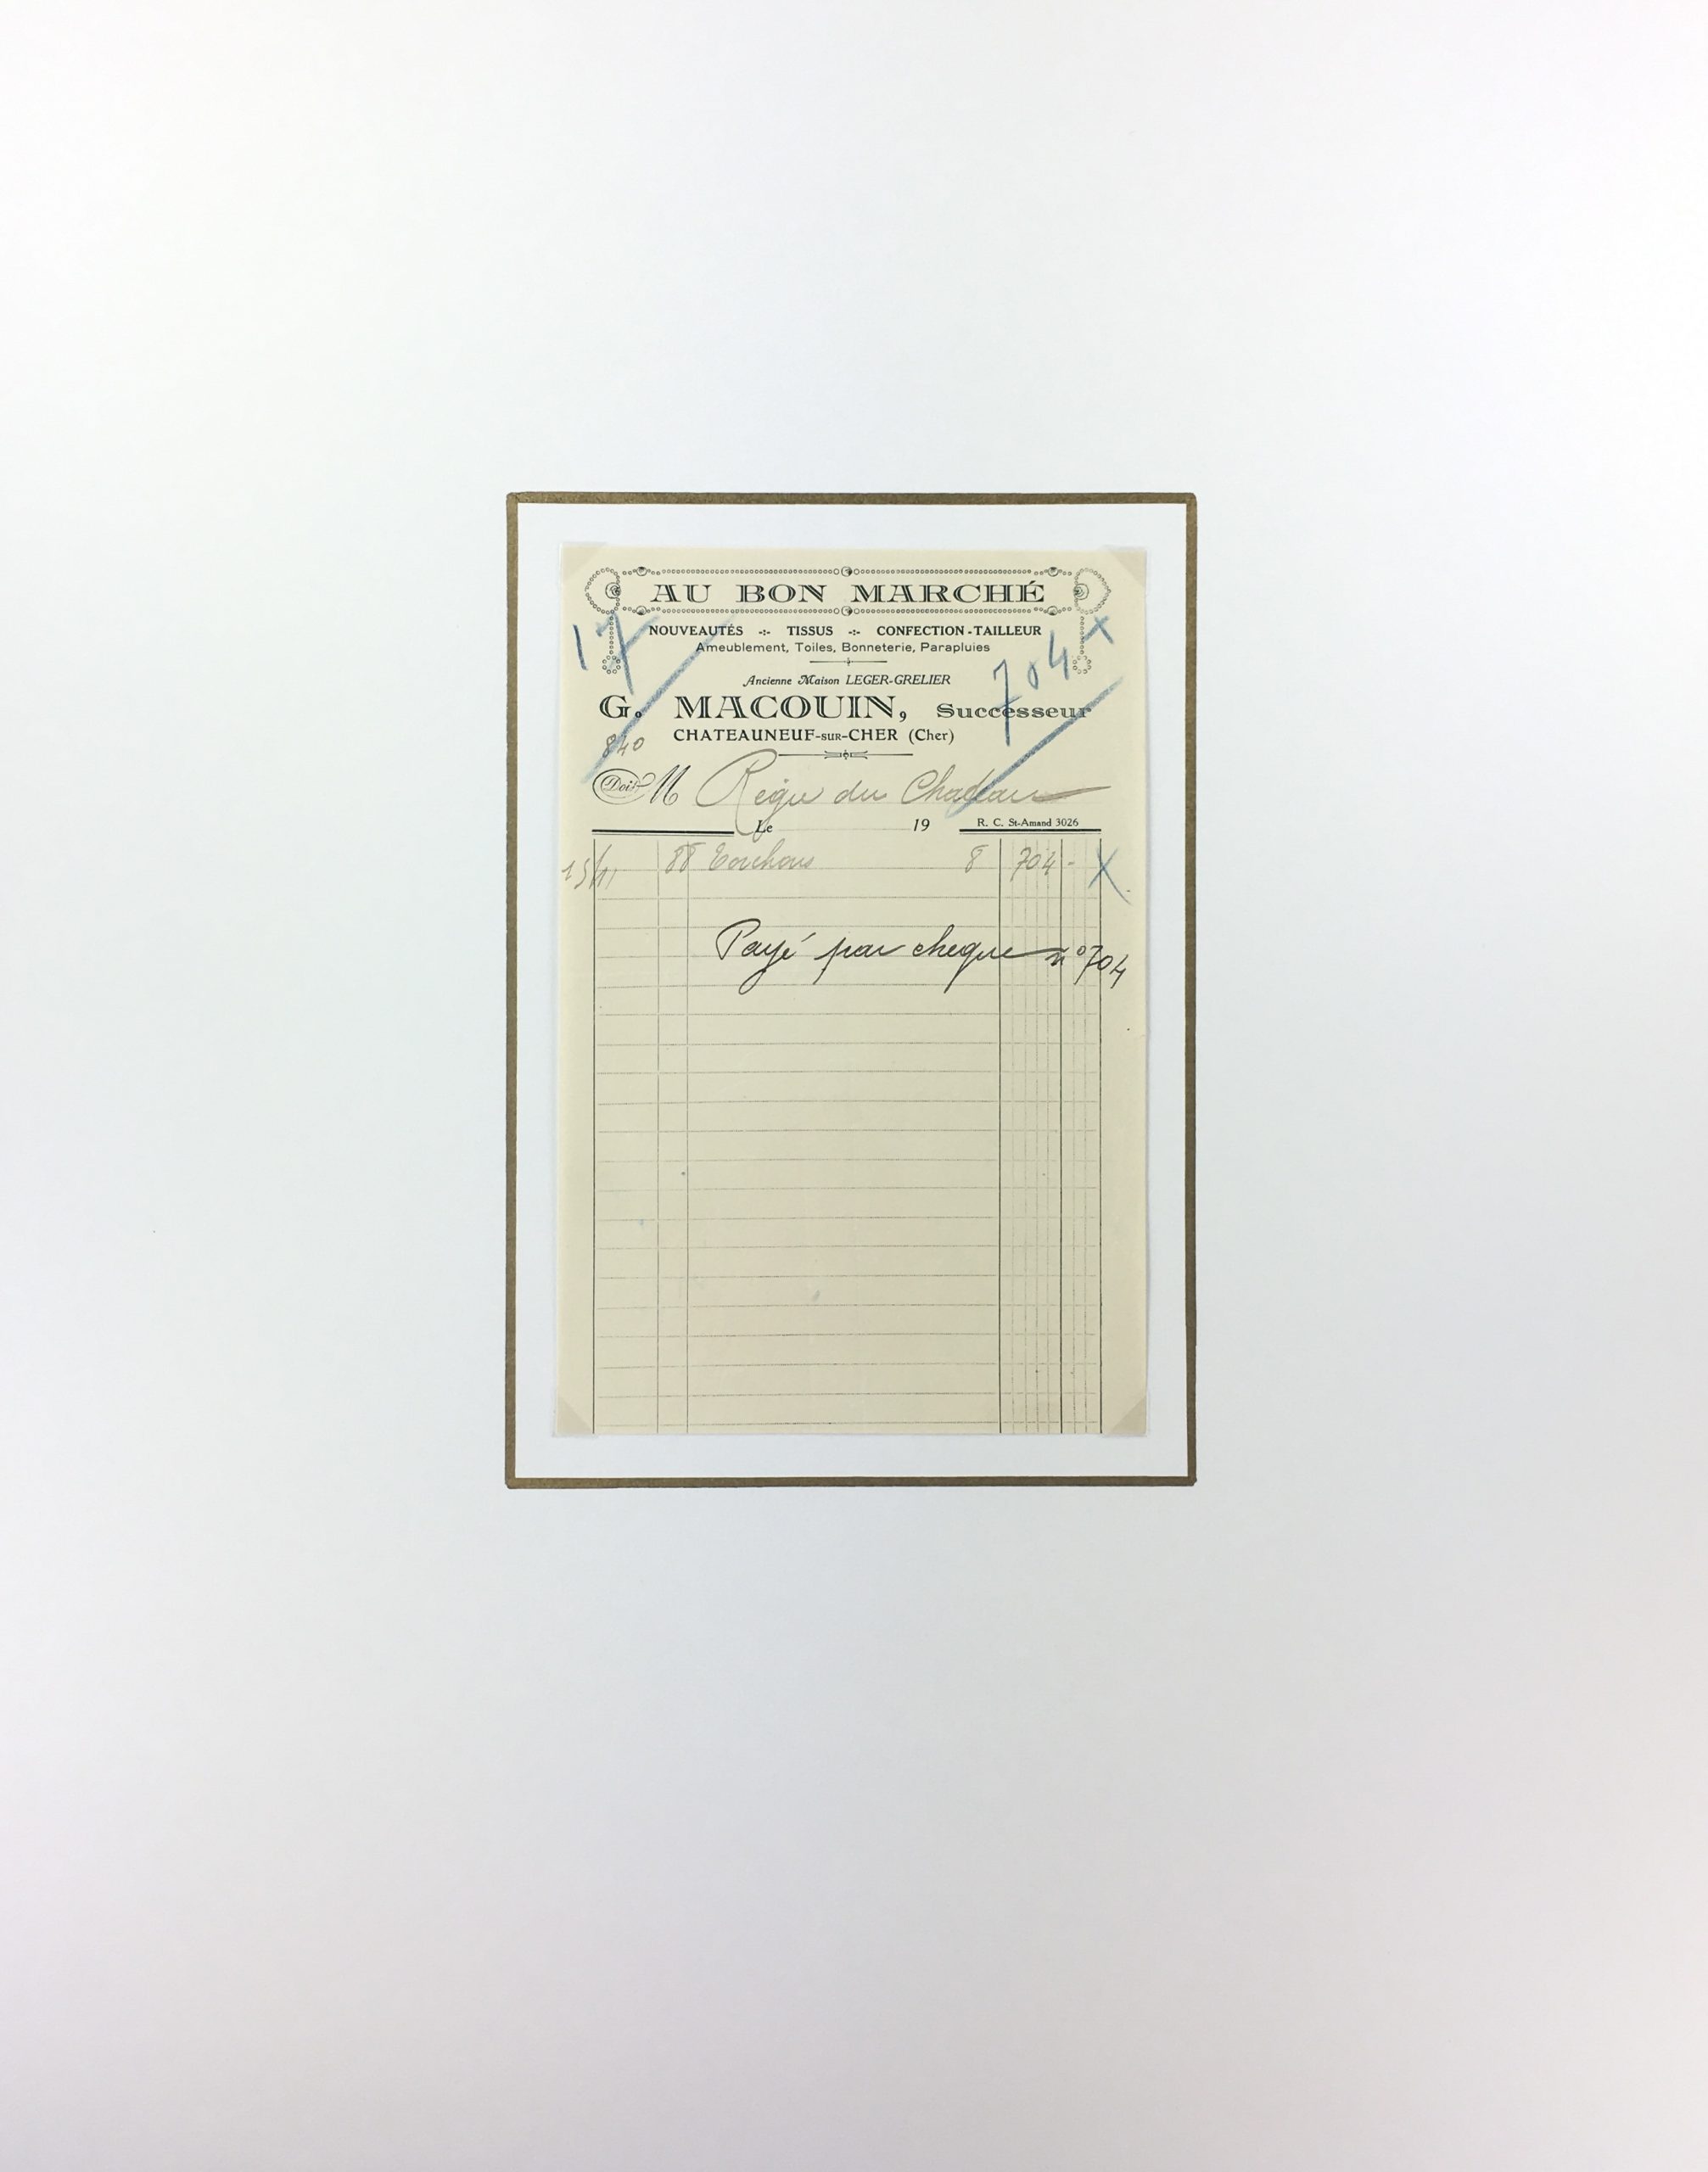 AU BON MARCHÉ
NOUVEAUTÉS -:- TISSUS -:- CONFECTION-TAILLEUR
Ameublement, Toiles, Bonneterie, Parapluies
17
704 x
Ancienne Maison LEGER-GRELIER
G. MACOUIN, Successeur
CHATEAUNEUF-SUR-CHER (Cher)
840
Doit M Régie du Chateau
Le 19 R. C. St-Amand 3026
15/11 88 Torchons 8 704 - X
Payé par cheque n° 704